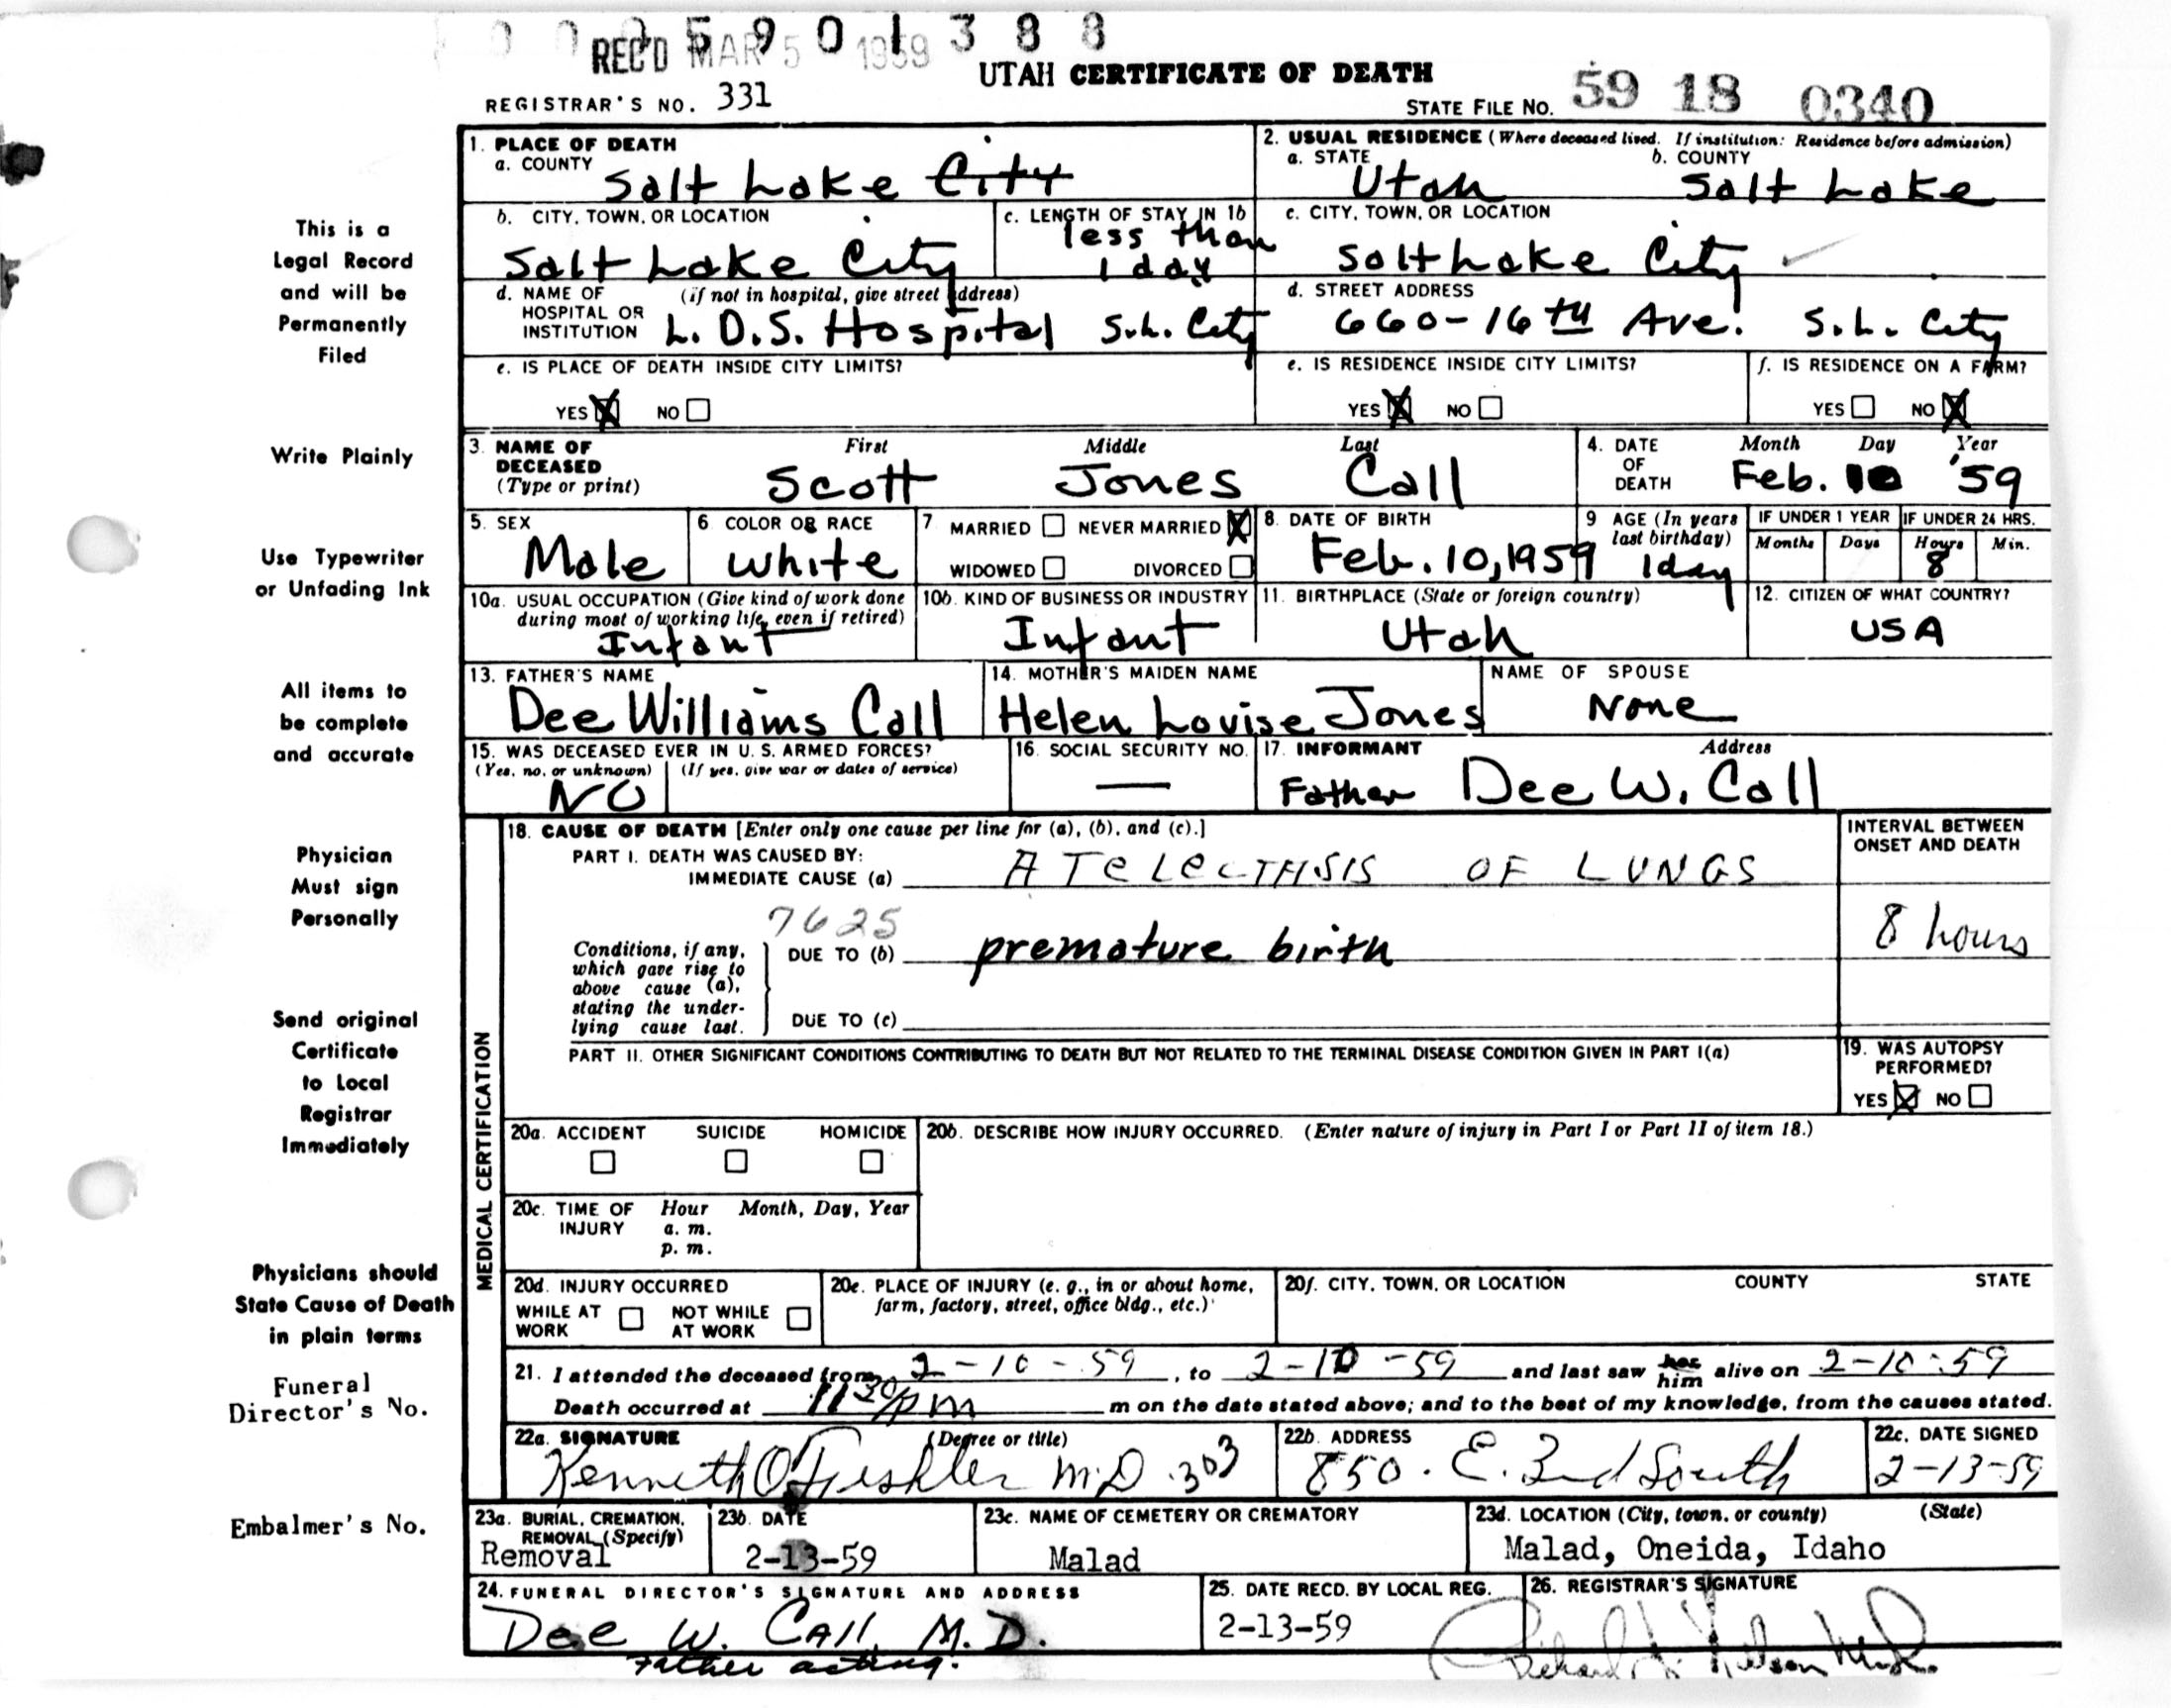 0 0 0 5 9 0 1 3 8 8
REC'D MAR 5 1959
UTAH CERTIFICATE OF DEATH
REGISTRAR'S NO. 331
STATE FILE NO. 59 18 0340
1. PLACE OF DEATH
a. COUNTY Salt Lake City
2. USUAL RESIDENCE (Where deceased lived. If institution: Residence before admission)
a. STATE Utah b. COUNTY Salt Lake
b. CITY, TOWN, OR LOCATION Salt Lake City
c. LENGTH OF STAY IN 1b less than 1 day
c. CITY, TOWN, OR LOCATION Salt Lake City
d. NAME OF HOSPITAL OR INSTITUTION (if not in hospital, give street address) L. D.S. Hospital S.L. City
d. STREET ADDRESS 660-16th Ave. S.L. City
e. IS PLACE OF DEATH INSIDE CITY LIMITS?
YES NO
e. IS RESIDENCE INSIDE CITY LIMITS?
YES NO
f. IS RESIDENCE ON A FARM?
YES NO
3. NAME OF DECEASED (Type or print)
First Middle Last
Scott Jones Call
4. DATE OF DEATH Month Day Year
Feb. 10 '59
5. SEX Male
6 COLOR OR RACE White
7 MARRIED NEVER MARRIED
WIDOWED DIVORCED
8. DATE OF BIRTH Feb. 10, 1959
9 AGE (In years last birthday) 1 day
IF UNDER 1 YEAR Months Days
IF UNDER 24 HRS. Hours Min.
8
10a. USUAL OCCUPATION (Give kind of work done during most of working life, even if retired)
Infant
10b. KIND OF BUSINESS OR INDUSTRY
Infant
11. BIRTHPLACE (State or foreign country)
Utah
12. CITIZEN OF WHAT COUNTRY?
USA
13. FATHER'S NAME
Dee Williams Call
14. MOTHER'S MAIDEN NAME
Helen Louise Jones
NAME OF SPOUSE
None
15. WAS DECEASED EVER IN U. S. ARMED FORCES?
(Yes, no, or unknown) (If yes, give war or dates of service)
NO
16. SOCIAL SECURITY NO.
—
17. INFORMANT Address
Father Dee W. Call
MEDICAL CERTIFICATION
18. CAUSE OF DEATH [Enter only one cause per line for (a), (b), and (c).]
INTERVAL BETWEEN ONSET AND DEATH
PART I. DEATH WAS CAUSED BY:
IMMEDIATE CAUSE (a) ATELECTASIS OF LUNGS
7625
Conditions, if any, which gave rise to above cause (a), stating the underlying cause last.
DUE TO (b) premature birth
8 hours
DUE TO (c)
PART II. OTHER SIGNIFICANT CONDITIONS CONTRIBUTING TO DEATH BUT NOT RELATED TO THE TERMINAL DISEASE CONDITION GIVEN IN PART I(a)
19. WAS AUTOPSY PERFORMED?
YES NO
20a. ACCIDENT SUICIDE HOMICIDE
20b. DESCRIBE HOW INJURY OCCURRED. (Enter nature of injury in Part I or Part II of item 18.)
20c. TIME OF INJURY Hour Month, Day, Year
a. m.
p. m.
20d. INJURY OCCURRED
WHILE AT WORK NOT WHILE AT WORK
20e. PLACE OF INJURY (e. g., in or about home, farm, factory, street, office bldg., etc.)
20f. CITY, TOWN, OR LOCATION COUNTY STATE
21. I attended the deceased from 2-10-59, to 2-10-59 and last saw her him alive on 2-10-59
Death occurred at 11 30/pm m on the date stated above; and to the best of my knowledge, from the causes stated.
22a. SIGNATURE (Degree or title)
Kenneth O M.D. 303
22b. ADDRESS
850. E. 2nd South
22c. DATE SIGNED
2-13-59
23a. BURIAL, CREMATION, REMOVAL (Specify)
Removal
23b. DATE
2-13-59
23c. NAME OF CEMETERY OR CREMATORY
Malad
23d. LOCATION (City, town, or county) (State)
Malad, Oneida, Idaho
24. FUNERAL DIRECTOR'S SIGNATURE AND ADDRESS
Dee W. Call, M.D.
Father acting.
25. DATE RECD. BY LOCAL REG.
2-13-59
26. REGISTRAR'S SIGNATURE
Richard
This is a
Legal Record
and will be
Permanently
Filed
Write Plainly
Use Typewriter
or Unfading Ink
All items to
be complete
and accurate
Physician
Must sign
Personally
Send original
Certificate
to Local
Registrar
Immediately
Physicians should
State Cause of Death
in plain terms
Funeral
Director's No.
Embalmer's No.